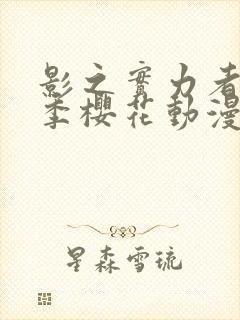 影之實力者
季櫻花動漫
星森雪琉